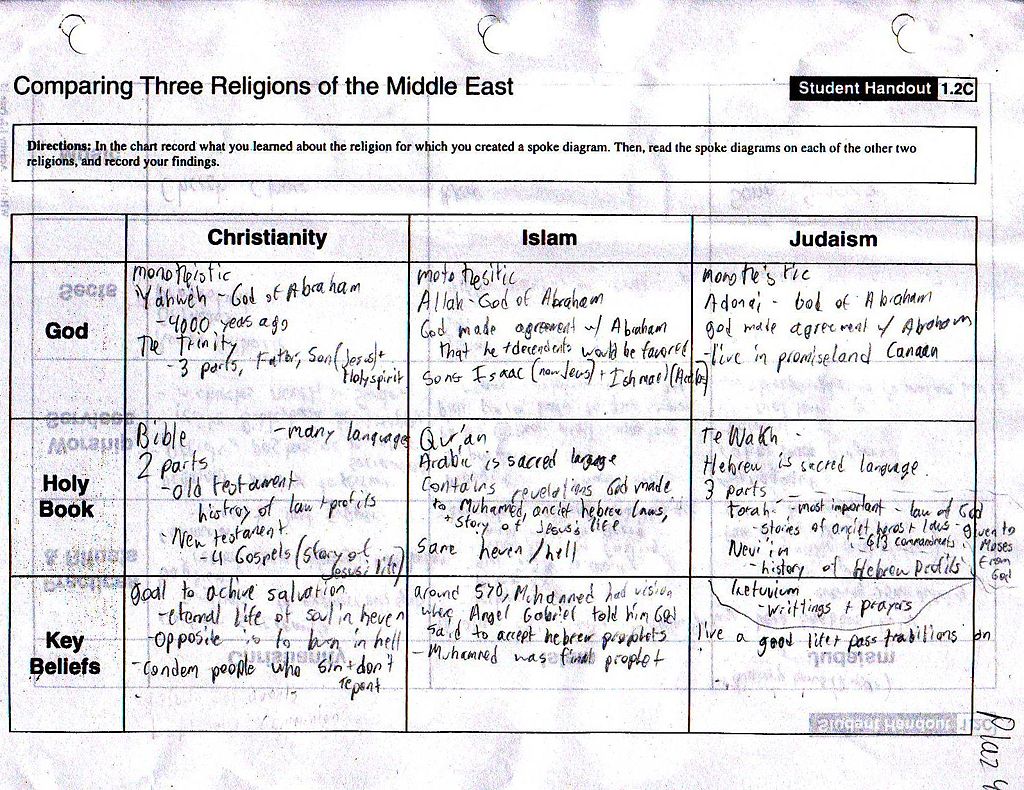 Comparing Three Religions of the Middle East
Student Handout 1.2C
Directions: In the chart record what you learned about the religion for which you created a spoke diagram. Then, read the spoke diagrams on each of the other two
religions, and record your findings.
Christianity
Islam
Judaism
God
monotheistic
Yahweh - God of Abraham
- 4000 years ago
The Trinity
- 3 parts, Father, Son (Jesus) +
Holy spirit
motothesitic
Allah - God of Abraham
God made agreement w/ Abraham
that he + decendents would be favored
Sons Isaac (now Jews) + Ishmael
monothestic
Adonai - God of Abraham
god made agreement w/ Abraham
- live in promiseland Canaan
Holy
Book
Bible - many languages
2 parts
- old testament
history of law + profits
- New testament
- 4 Gospels (Story of
Jesus's life)
Qur'an
Arabic is sacred language
Contains revelations God made
to Muhamed, anciet hebrew laws,
+ story of Jesus's life
Same heven/hell
TeNakh -
Hebrew is sacred language
3 parts
Torah - most important - law of God
- stories of anciet heros + laws - given to
- 613 commandments Moses
from
God
Nevi'im
- history of Hebrew Profits
Ketuvium
- writtings + prayers
Key
Beliefs
goal to achive salvation
- eternal life of soul in heven
- Opposite is to burn in hell
- condem people who sin + don't
repent
around 570, Muhamned had vision
where Angel Gabriel told him God
said to accept hebrew prophets
- Muhamned was final prophet
live a good life + pass traditions on